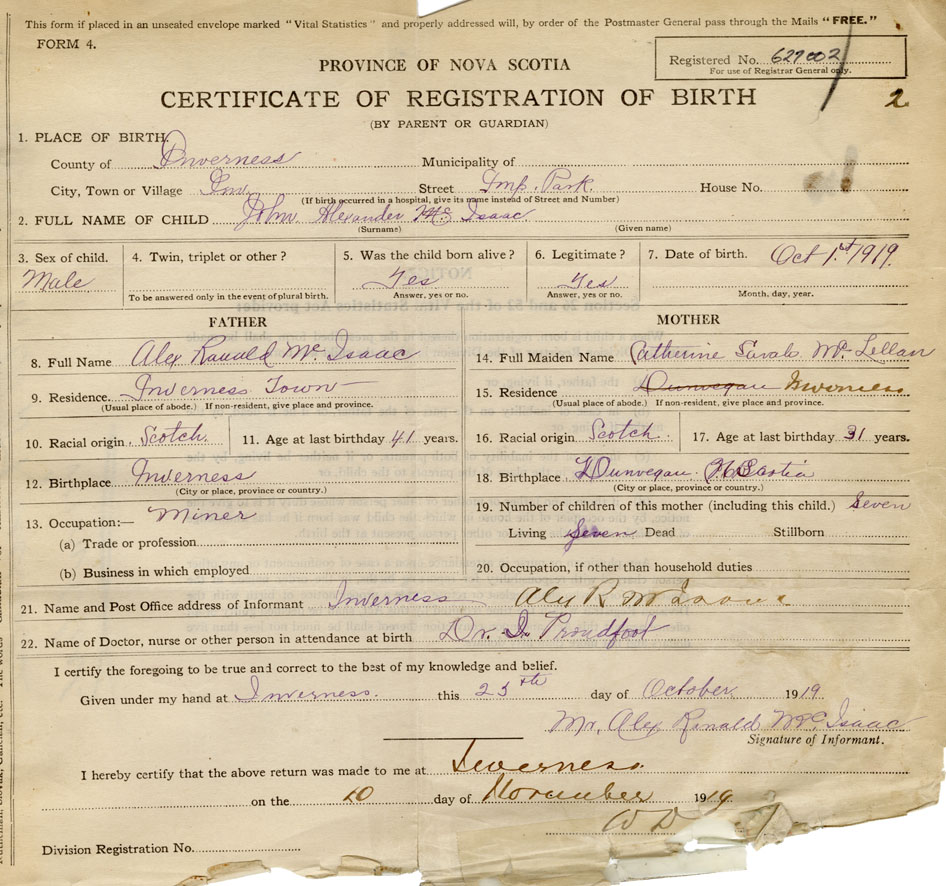 This form if placed in an unsealed envelope marked "Vital Statistics" and properly addressed will, by order of the Postmaster General pass through the Mails "FREE."
FORM 4.
Registered No. 627002
For use of Registrar General only.
2
PROVINCE OF NOVA SCOTIA
CERTIFICATE OF REGISTRATION OF BIRTH
(BY PARENT OR GUARDIAN)
1. PLACE OF BIRTH.
County of Inverness Municipality of
City, Town or Village Inv. Street Imp. Park. House No.
(If birth occurred in a hospital, give its name instead of Street and Number)
2. FULL NAME OF CHILD John Alexander Mc Isaac
(Surname) (Given name)
3. Sex of child. 4. Twin, triplet or other? 5. Was the child born alive? 6. Legitimate? 7. Date of birth. Oct 1st 1919.
Male Yes Yes
To be answered only in the event of plural birth. Answer, yes or no. Answer, yes or no. Month, day, year.
FATHER MOTHER
8. Full Name Alex Ranald Mc Isaac 14. Full Maiden Name Catherine Sarah Mc Lellan
9. Residence Inverness Town 15. Residence Dunvegan Inverness
(Usual place of abode.) If non-resident, give place and province. (Usual place of abode.) If non-resident, give place and province.
10. Racial origin Scotch. 11. Age at last birthday 41 years. 16. Racial origin Scotch. 17. Age at last birthday 31 years.
12. Birthplace Inverness 18. Birthplace Dunvegan N Scotia
(City or place, province or country.) (City or place, province or country.)
13. Occupation:— Miner 19. Number of children of this mother (including this child.) Seven
(a) Trade or profession Living Seven Dead Stillborn
(b) Business in which employed 20. Occupation, if other than household duties
21. Name and Post Office address of Informant Inverness Alex R McIsaac
22. Name of Doctor, nurse or other person in attendance at birth Dr. I. Proudfoot
I certify the foregoing to be true and correct to the best of my knowledge and belief.
Given under my hand at Inverness. this 25th day of October 1919.
Mr. Alex Ronald McIsaac
Signature of Informant.
I hereby certify that the above return was made to me at Inverness.
on the 10 day of November 1919.
W D
Division Registration No.